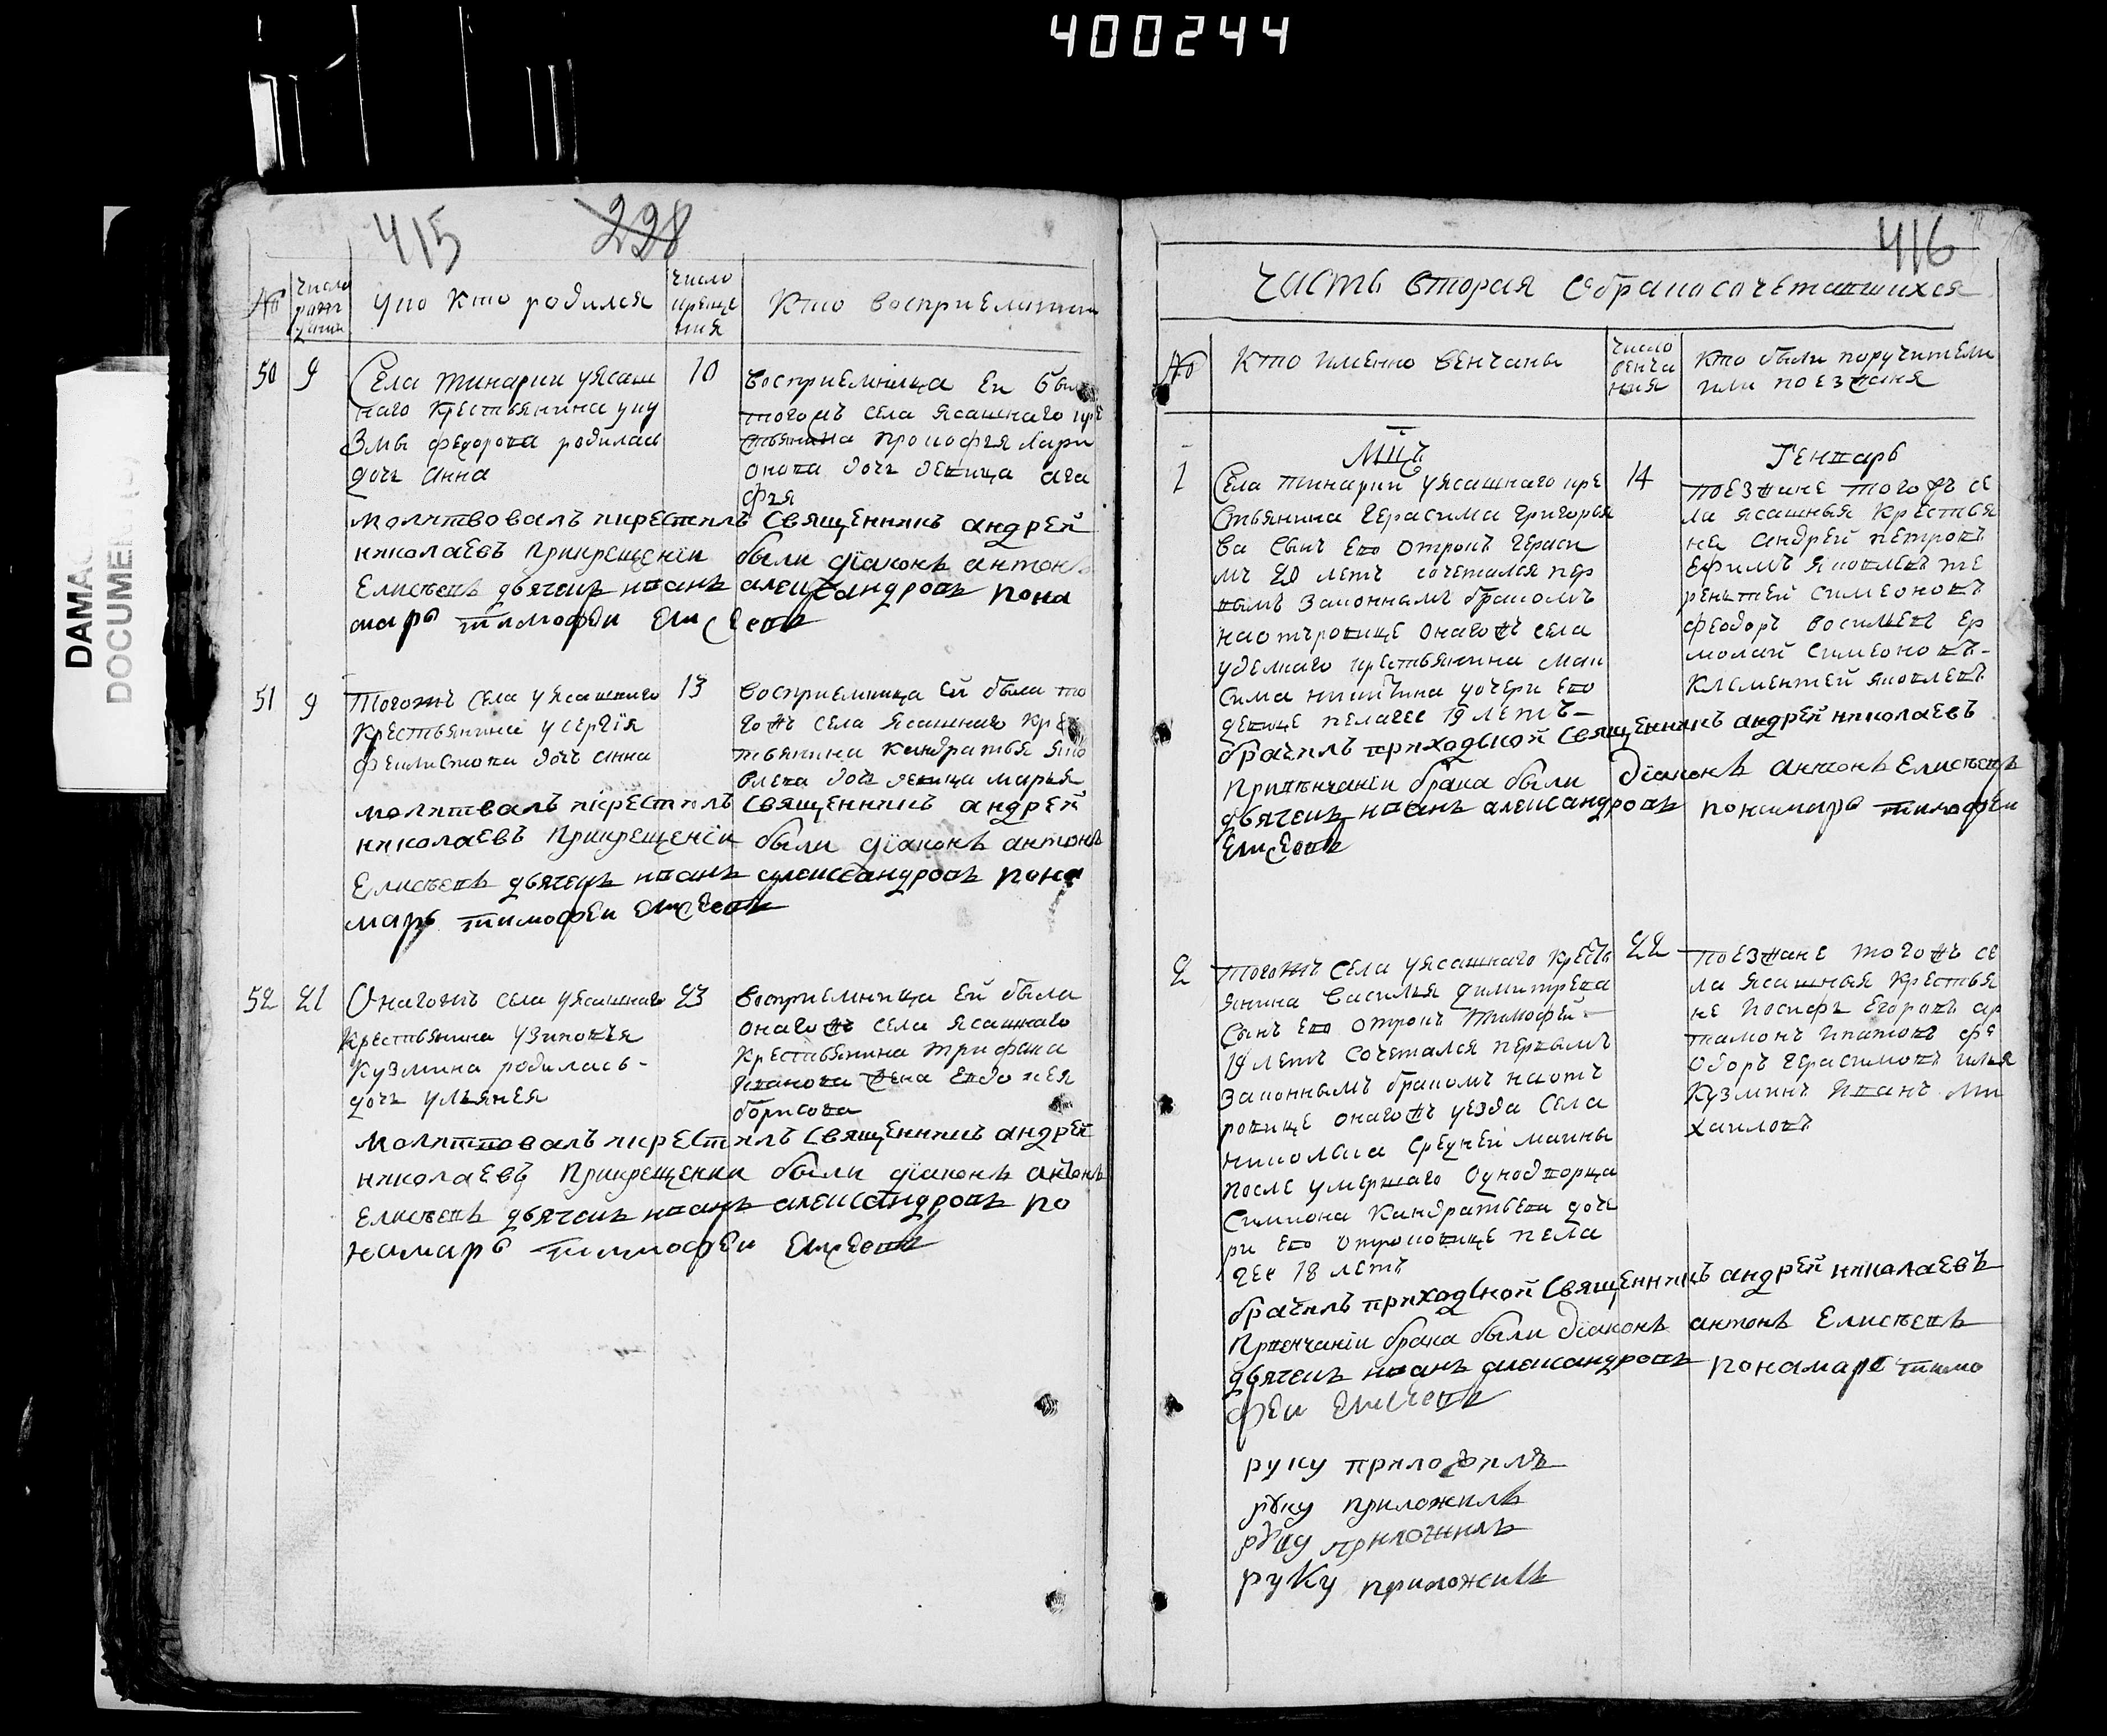 400244
DAMAG
DOCUMEN
415
228
№
число
рож
дения
у ково кто родился
число
креще
ния
кто восприемники
50
9
Села тинарки уясаш
наго крестьянина уку
змы федорова родилась
дочь анна
10
восприемница ей была
тогожъ села ясашнаго кре
стьянина прокофья лари
онова дочь девица ага
фья
молитвовалъ икрестилъ священникъ андрей
николаевъ прикрещенїи были дїаконъ антонъ
Елисеевъ дьячекъ иванъ александровъ поно
марь тимофеи Елисеевъ
51
9
Тогожъ села уясашнаго
крестьянина усергїя
феклистова дочь анна
13
восприемница ей была то
гожъ села ясашнаго крес
тьянина кандратья яко
влева дочь девица марья
молитвалъ икрестилъ священникъ андрей
николаевъ прикрещенїи были дїаконъ антонъ
Елисеевъ дьячекъ иванъ александровъ поно
марь тимофеи Елисеевъ
52
21
Онагожъ села уясашнаго
крестьянина узиновья
кузмина родилась-
дочь ульянея
23
восприемница ей была
онагожъ села ясашнаго
крестьянина трифана
иванова жена Евдокея
борисова
молитвовалъ икрестилъ священникъ андрей
николаевъ прикрещенїи были дїаконъ антонъ
Елисеевъ дьячекъ иванъ александровъ по
намарь тимофеи Елисеевъ
416
часть вторая обракосочетавшихся
№
кто именно венчаны
число
венча
ния
кто были поручители
или поезжаня
Мцъ
Генварь
1
Села тинарки уясашнаго кре
стьянина герасима григорье
ва сынъ ево отрокъ гераси
мъ 20 летъ сочетался пер
вымъ законнымъ бракомъ
наотроковице онагожъ села
уделнаго крестьянина мак
сима никитина дочери ево
девице пелагее 19 летъ-
14
поезжане тогожъ се
ла ясашныя крестья
не андрей петровъ
Ефимъ яковлевъ те
рентей симеоновъ
феодоръ васильевъ Ер
молай симеоновъ-
климентей яковлевъ
брачилъ приходской священникъ андрей николаевъ
привѣнчанїи брака были дїаконъ антонъ Елисеевъ
дьячекъ иванъ александровъ понамарь тимофеи
Елисеевъ
2
тогожъ села уясашнаго кресть
янина василья димитрева
сынъ ево отрокъ тимофей-
19 летъ сочетался первымъ
законнымъ бракомъ наотъ
ровице онагожъ уезда села
николска средней маины
после умершаго однодворца
симиона кандратьева доче
ри ево отроковице пела
гее 18 летъ
22
поезжане тогожъ се
ла ясашныя крестья
не иосифъ Егоровъ ар
тамонъ ипатовъ фе
одоръ герасимовъ илья
кузминъ иванъ ми
хаиловъ
брачилъ приходской священникъ андрей николаевъ
привенчанїи брака были дїаконъ антонъ Елисеевъ
дьячекъ иванъ александровъ понамарь тимо
феи Елисеевъ
руку приложилъ
руку приложилъ
руку приложилъ
руку приложилъ